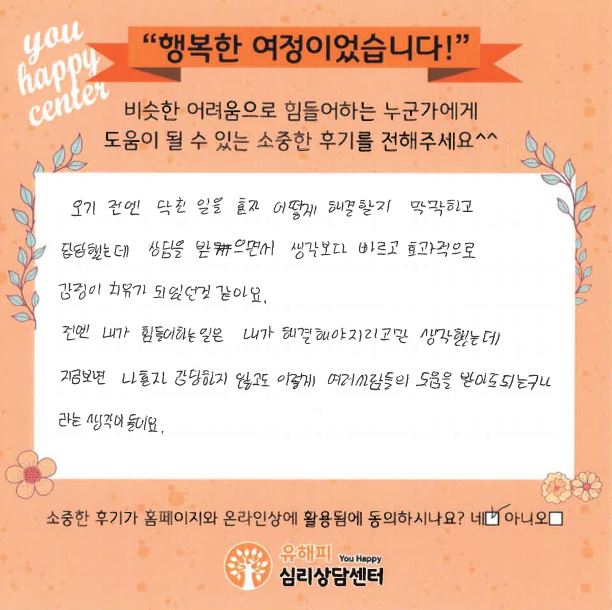 you
happy
center
“행복한 여정이었습니다!”
비슷한 어려움으로 힘들어하는 누군가에게
도움이 될 수 있는 소중한 후기를 전해주세요^^
오기 전엔 닥친 일을 혼자 어떻게 해결할지 막막하고
답답했는데 상담을 받으면서 생각보다 빠르고 효과적으로
감정이 치유가 되었던것 같아요.
전엔 내가 힘들어하는일은 내가 해결해야지라고만 생각했는데
지금보면 나혼자 감당하지 않고도 이렇게 여러사람들의 도움을 받아도 되는구나
라는 생각이 들어요.
소중한 후기가 홈페이지와 온라인상에 활용됨에 동의하시나요? 네☑ 아니오☐
유해피 You Happy
심리상담센터